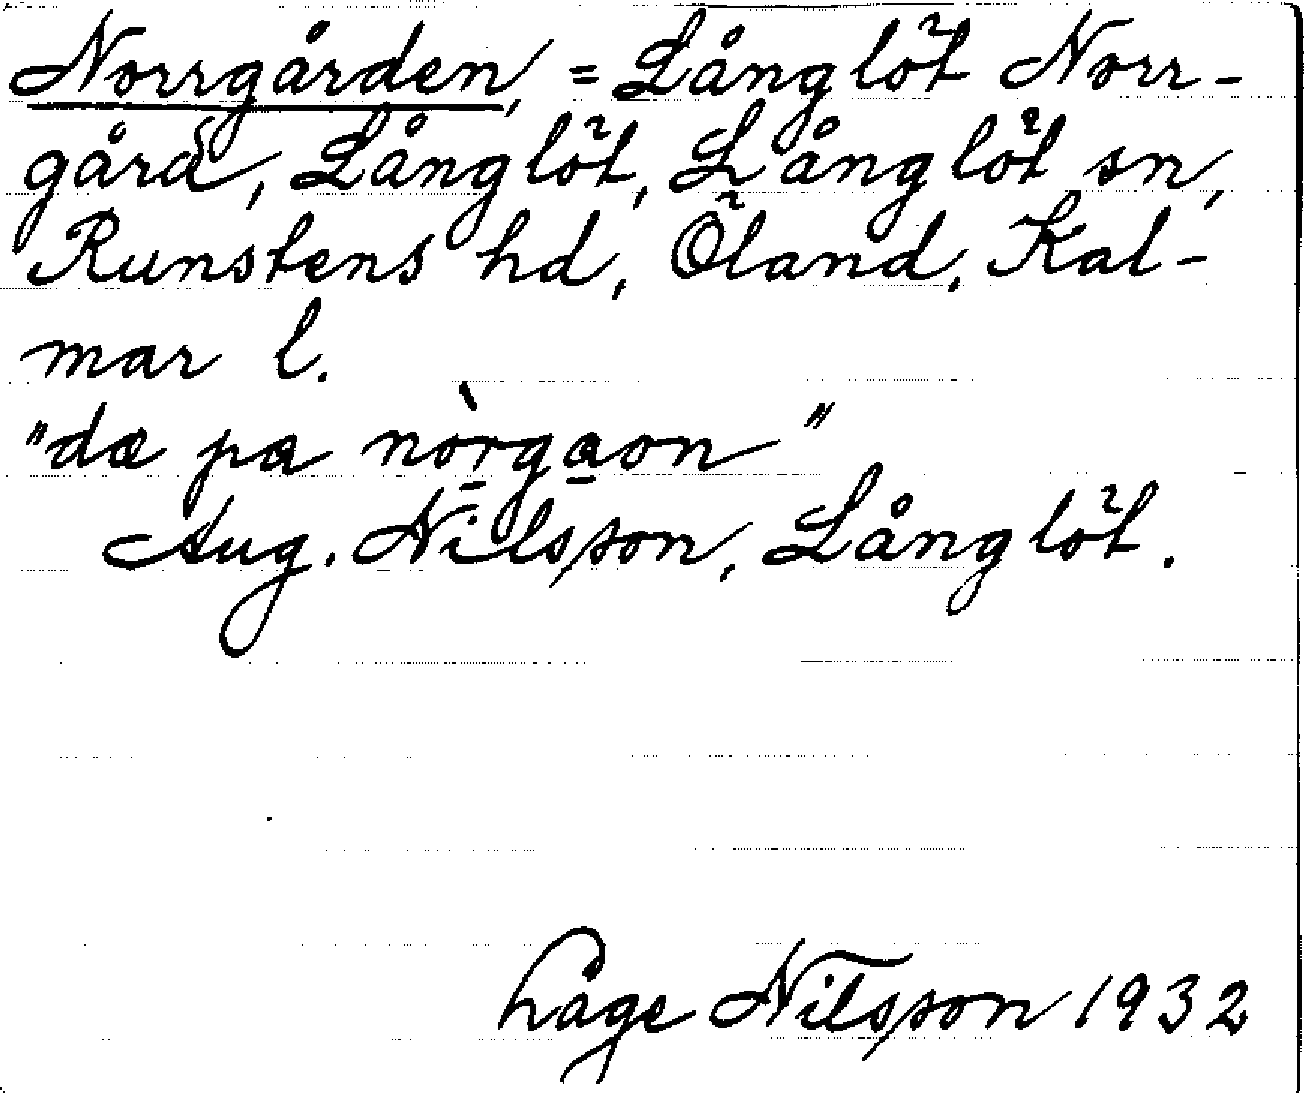 Norrgården, = Långlöt Norr-
gård, Långlöt, Långlöt sn,
Runstens hd, Öland, Kal-
mar l.
"dæ pa nòrgaon"
Aug. Nilsson, Långlöt.
Låge Nilsson 1932